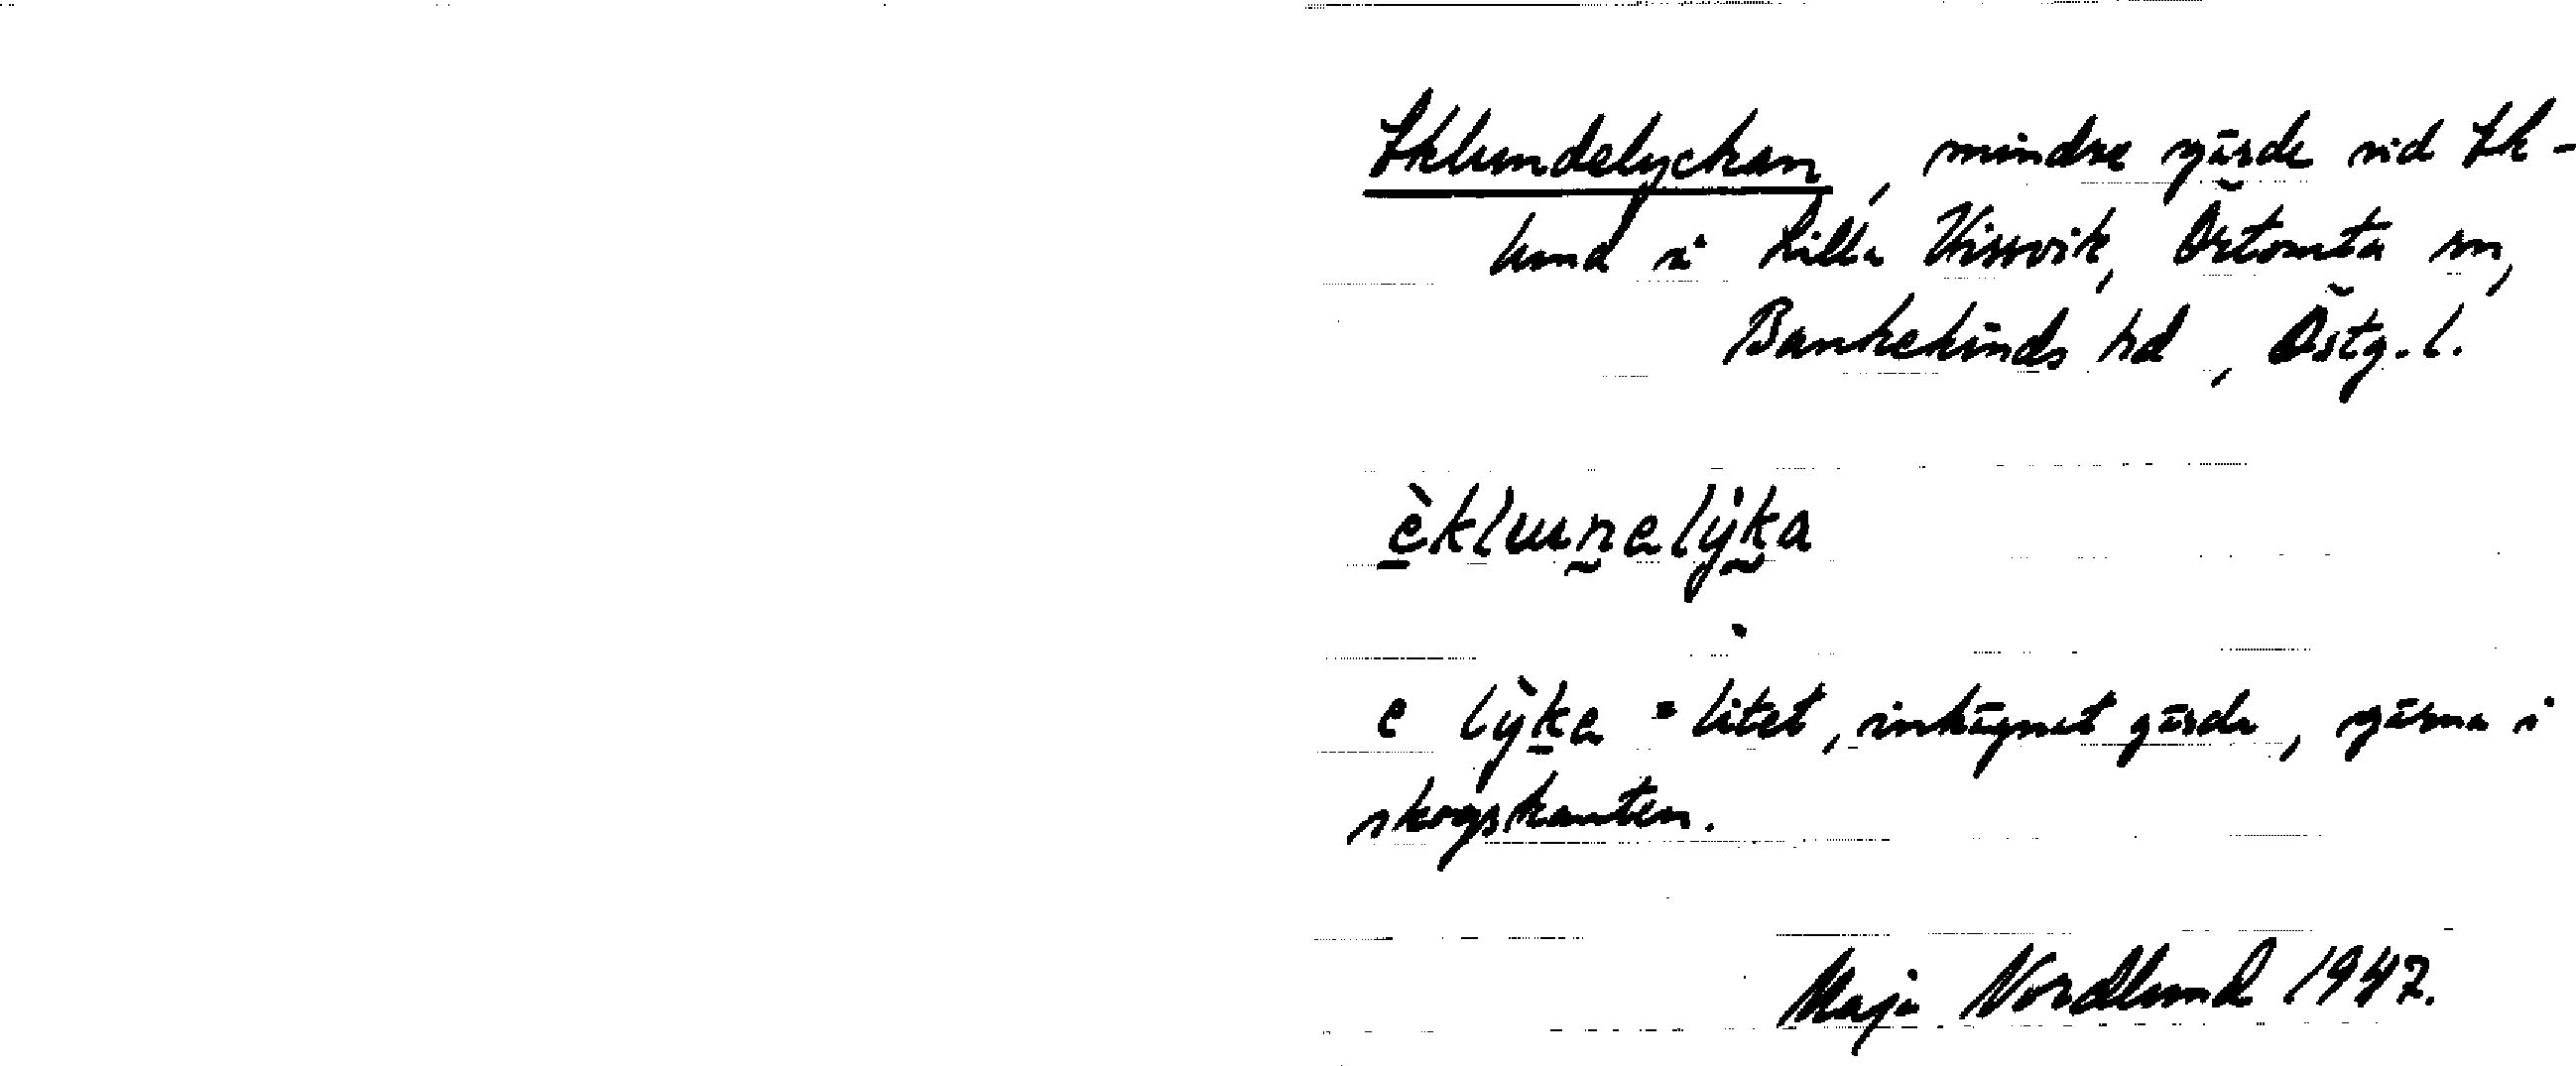 Eklundelyckan, mindre gärde vid Ek-
lund i Lilla Vissvik, Örtomta sn,
Bankekinds hd, Östg. l.
è̲klɯn̰elẏk̰a
e lỳk̲e = litet, inhägnat gärde, gärna i
skogskanten.
Maja Nordlund 1947.